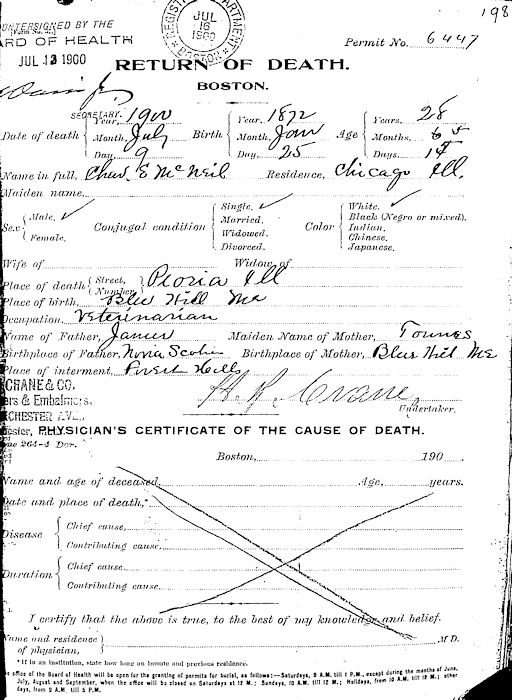 198
COUNTERSIGNED BY THE
BOARD OF HEALTH
JUL 13 1900
REGISTRY DEPARTMENT
JUL
16
1900
BOSTON
Permit No. 6447
RETURN OF DEATH.
BOSTON.
SECRETARY.
Date of death { Year, 1900 Birth { Year, 1872 Age { Years, 28
Month, July Month, Jan Months, 5
Day, 9 Day, 25 Days, 14
Name in full, Chas. E McNeil Residence, Chicago Ill.
Maiden name
Sex { Male, ✓ Female. Conjugal condition { Single. ✓ Married. Widowed. Divorced. Color { White. ✓ Black (Negro or mixed). Indian. Chinese. Japanese.
Wife of Widow of
Place of death { Street, Number, Peoria Ill
Place of birth, Blue Hill Me
Occupation, Veterinarian
Name of Father, James Maiden Name of Mother,
Birthplace of Father, Nova Scotia Birthplace of Mother, Blue Hill Me
Place of interment, Forest Hills
CRANE & CO.
ers & Embalmers.
CHESTER AVE.,
H. R. Crane
Undertaker.
ester,
264-4 Dor.
PHYSICIAN'S CERTIFICATE OF THE CAUSE OF DEATH.
Boston, 190
Name and age of deceased, Age, years.
Date and place of death,*
Disease { Chief cause,
Contributing cause,
Duration { Chief cause,
Contributing cause,
I certify that the above is true, to the best of my knowledge and belief.
Name and residence of physician, M.D.
* If in an institution, state how long an inmate and previous residence.
office of the Board of Health will be open for the granting of permits for burial, as follows:—Saturdays, 9 A.M. till 1 P.M., except during the months of June,
July, August and September, when the office will be closed on Saturdays at 12 M.; Sundays, 10 A.M. till 12 M.; Holidays, from 10 A.M. till 12 M.; other
days, from 9 A.M. till 5 P.M.